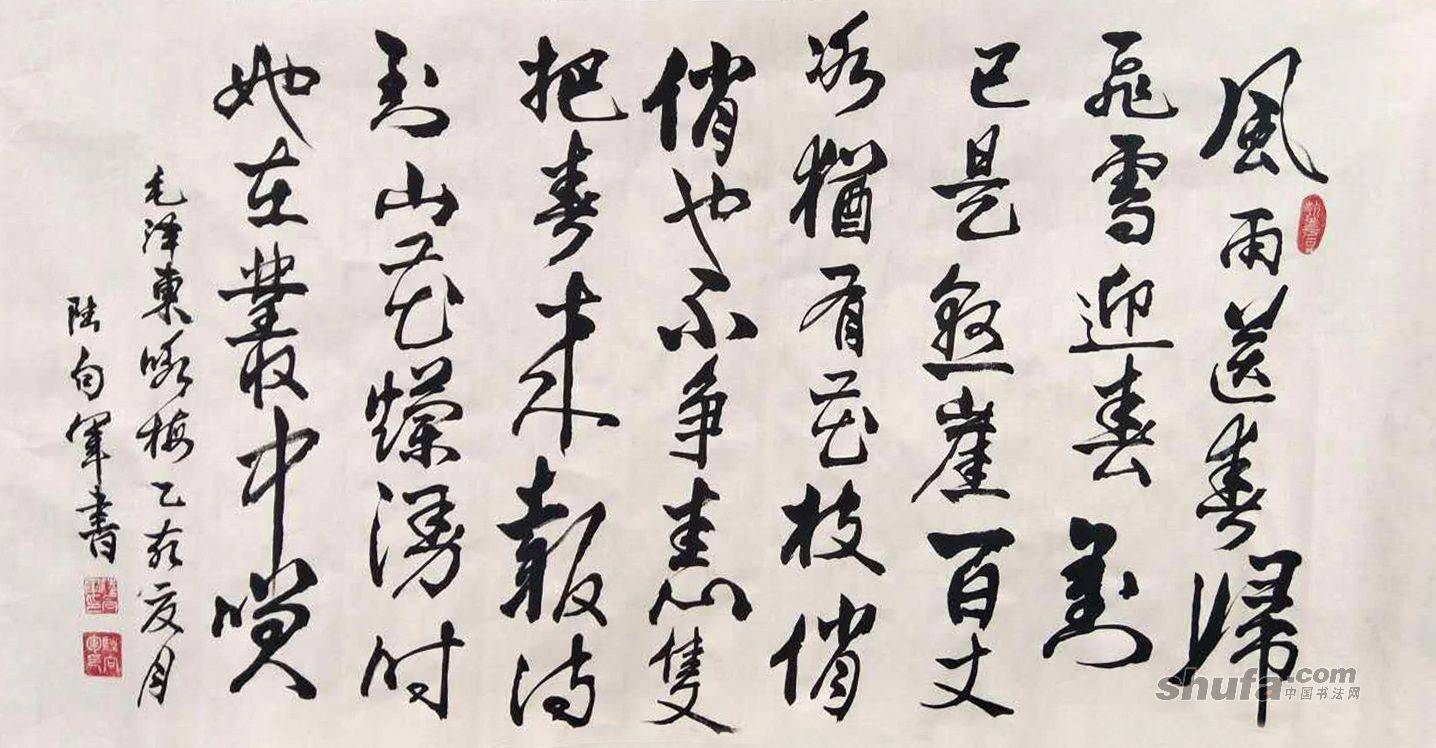 風雨送春歸
飛雪迎春到
已是懸崖百丈
冰猶有花枝俏
俏也不争春隻
把春来報待
到山花爛漫时
她在叢中咲
毛泽東咏梅乙夏月
陆向軍書
shufa.com
中国书法网